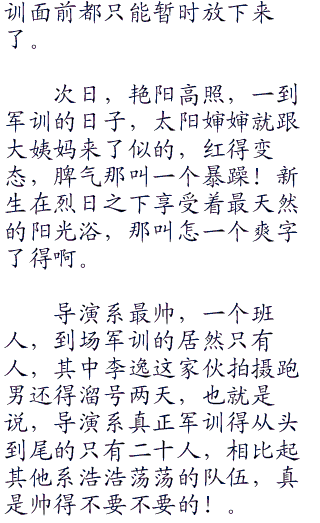 训面前都只能暂时放下来
了。
次日，艳阳高照，一到
军训的日子，太阳婶婶就跟
大姨妈来了似的，红得变
态，脾气那叫一个暴躁！新
生在烈日之下享受着最天然
的阳光浴，那叫怎一个爽字
了得啊。
导演系最帅，一个班
人，到场军训的居然只有
人，其中李逸这家伙拍摄跑
男还得溜号两天，也就是
说，导演系真正军训得从头
到尾的只有二十人，相比起
其他系浩浩荡荡的队伍，真
是帅得不要不要的！。